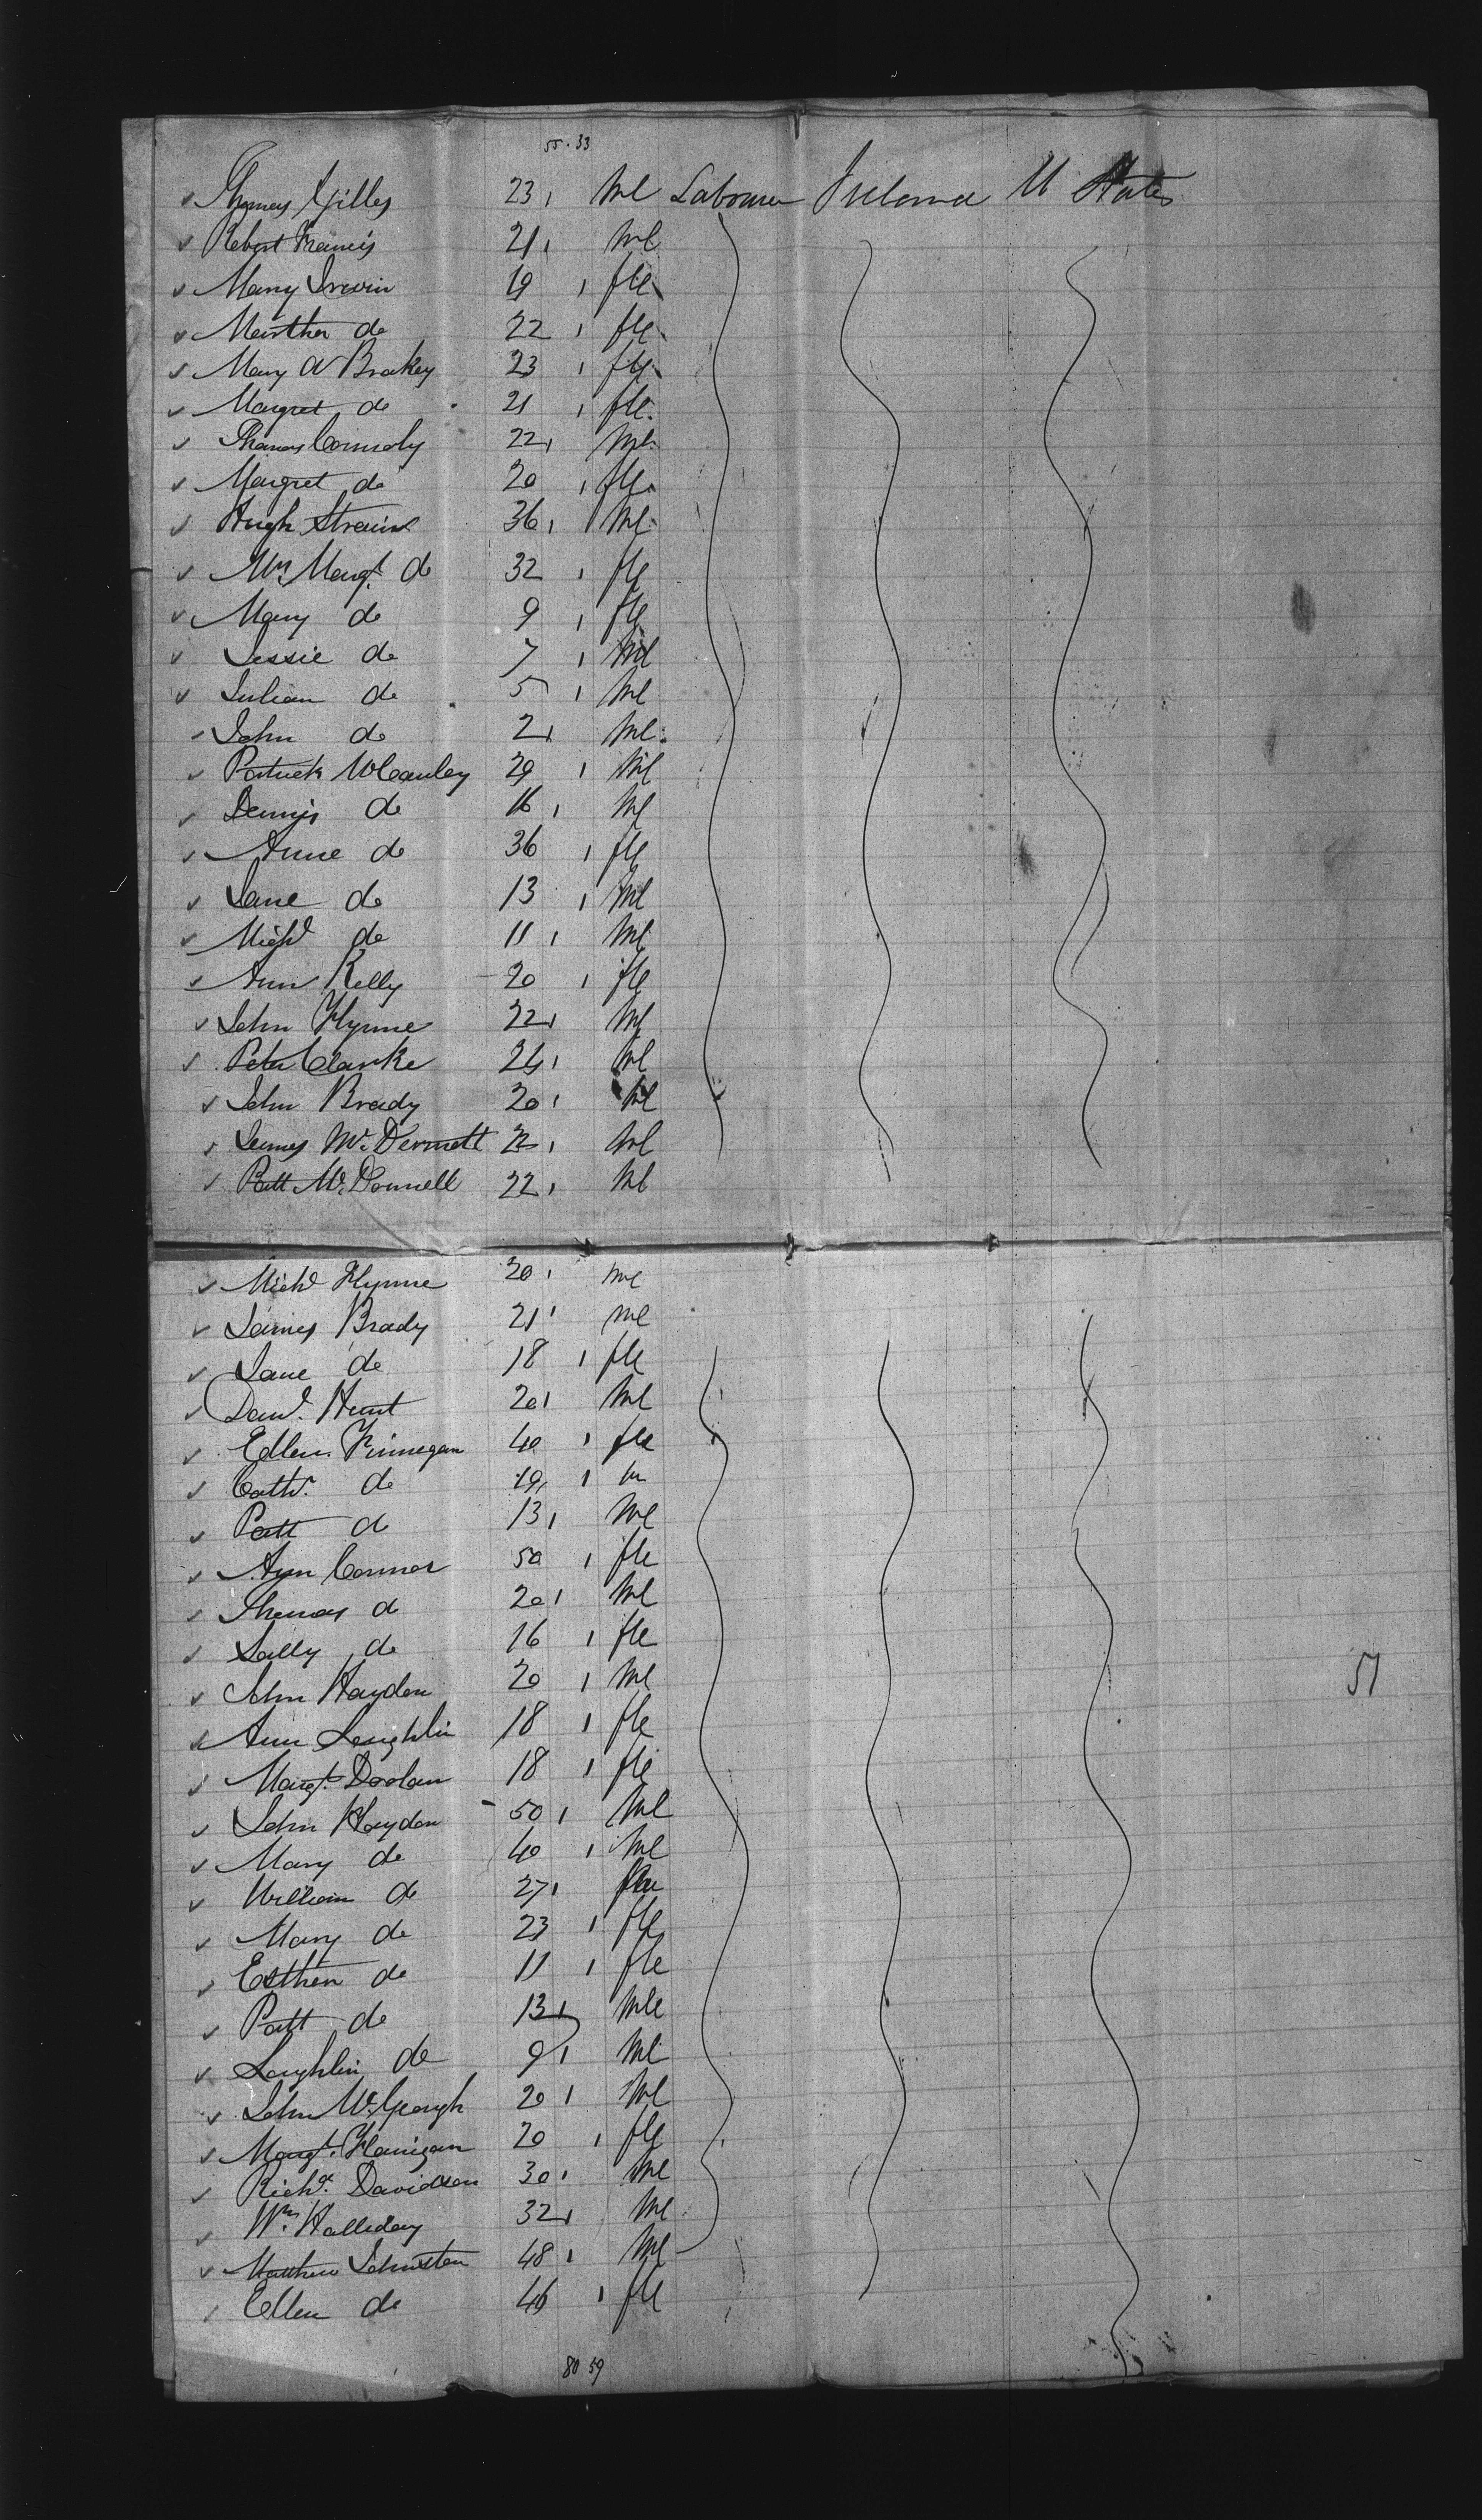 55 . 33
Thomas Gilles 23 1 Ml Labourer Ireland U States
Robert Francis 21 1 Ml
Mary Irwin 19 1 fle
Martha do 22 1 fle
Mary A Brakey 23 1 fle
Margret do 21 1 fle
Thomas Connoly 22 1 Ml
Margret do 20 1 fle
Hugh Strain 36 1 Ml
Mrs Margt. do 32 1 fle
Mary do 9 1 fle
Jessie do 7 1 Ml
Julian do 5 1 Ml
John do 2 1 Ml
Patrick McCauley 29 1 Ml
Dennis do 16 1 Ml
Anne do 36 1 fle
Jane do 13 1 Ml
Michl do 11 1 Ml
Ann Kelly 20 1 fle
John Flynne 22 1 Ml
Peter Clarke 24 1 Ml
John Brady 20 1 Ml
James McDermott 22 1 Ml
Patt McDonnell 22 1 Ml
Michl Flynne 20 1 Ml
James Brady 21 1 Ml
Jane do 18 1 fle
Danl. Hunt 20 1 Ml
Ellen Finnegan 40 1 fle
Cathr. do 19 1
Patt do 13 1 Ml
Ann Connor 50 1 fle
Thomas do 20 1 Ml
Sally do 16 1 fle
John Haydon 20 1 Ml
Ann Loughlin 18 1 fle
Margt. Doolan 18 1 fle
John Haydon 50 1 Ml
Mary do 40 1 Ml
William do 27 1
Mary do 23 1 fle
Esther do 11 1 fle
Patt do 13 1 Mle
Loughlin do 9 1 Ml
John McGeough 20 1 Ml
Margt. Flanigan 20 1 fle
Richd. Davidson 30 1 Ml
Wm. Halliday 32 1 Ml
Matthew Johnston 48 1 Ml
Ellen do 46 1 fle
51
80 59